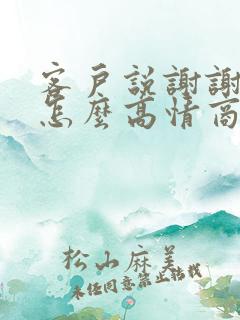 客戶説謝謝
怎麼高情商
松山麻美
未經同意禁止轉載